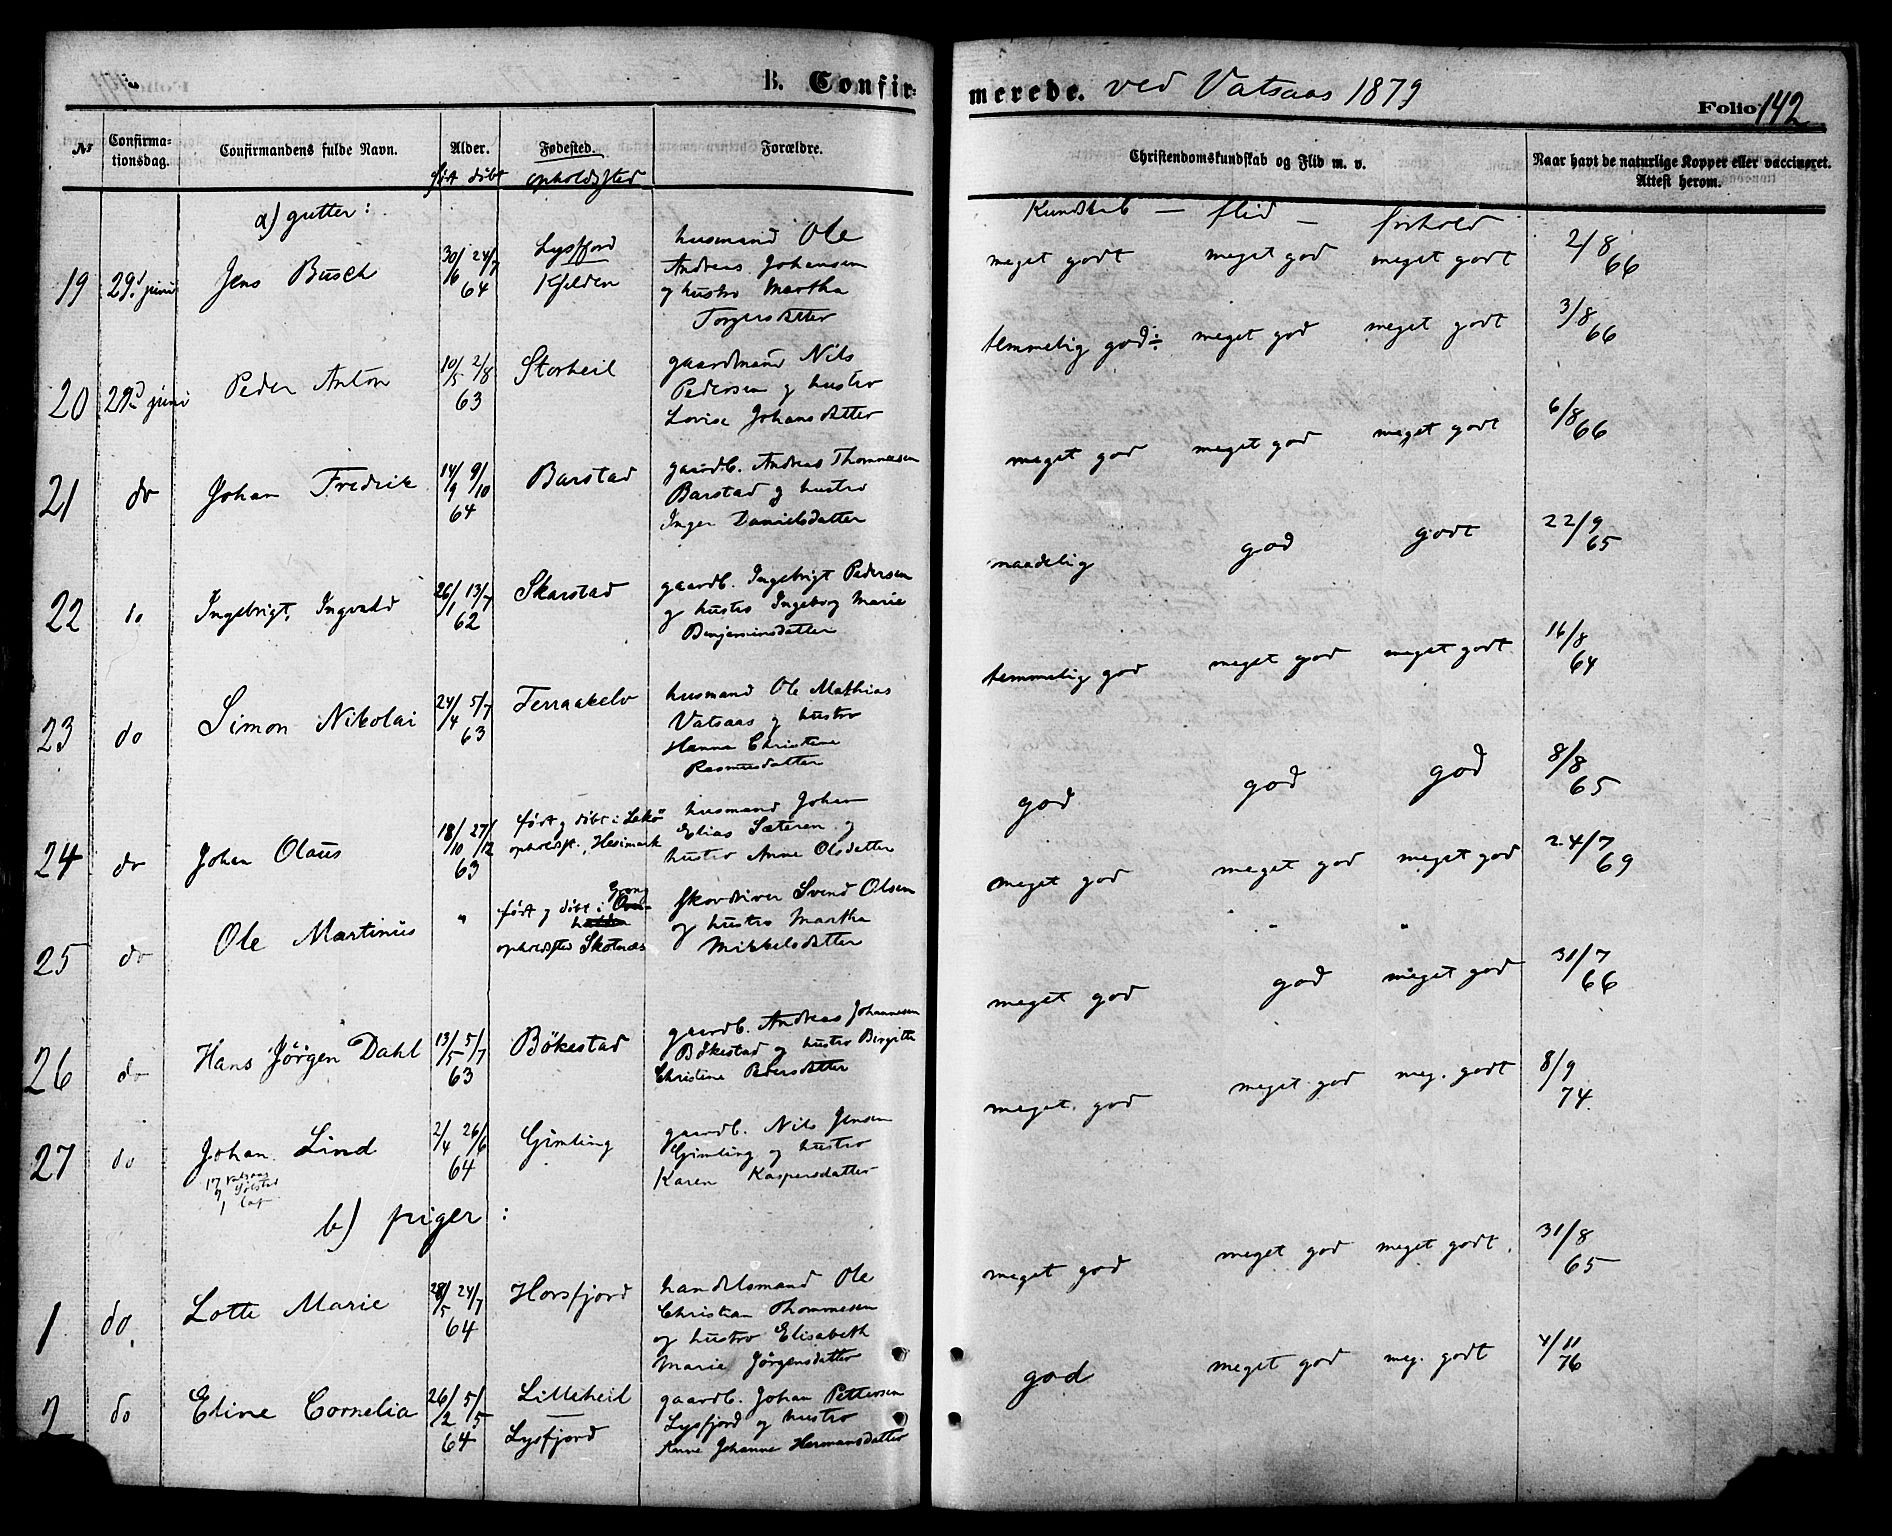 B. Confirmerede. ved Vatsaas 1879
Folio 142
No | Confirmationsdag. | Confirmandens fulde Navn. | Alder. født døbt | Fødested. opholdssted | Forældre. | Christendomskundskab og Flid m. v. | Naar havt de naturlige Kopper eller vaccineret. Attest herom.
a) gutter:
Kundskab — flid — forhold
19 29d juni Jens Busch 30/6 24/7 64 Lysfjord Kjelden husmand Ole
Andreas Johansen
og hustro Martha
Torgersdatter
meget godt meget god meget godt 2/8 66
20 29d juni Peder Anton 10/5 2/8 63 Storheil gaardmand Nils
Pedersen og hustro
Lovise Johansdatter
temmelig god÷ meget god meget godt 3/8 66
21 do Johan Fredrik 14/9 9/10 64 Barstad gaardb. Andreas Thommesen
Barstad og hustro
Inger Danielsdatter
meget god meget god meget godt 6/8 66
22 do Ingebrigt Ingvald 26/1 13/7 62 Skarstad gaardb. Ingebrigt Pedersen
og hustro Ingeborg Marie
Benjaminsdatter
maadelig god godt 22/9 65
23 do Simon Nikolai 24/4 5/7 63 Terraakelv husmand Ole Mathias
Vatsaas og hustro
Hanna Christine
Rasmusdatter
temmelig god meget god meget godt 16/8 64
24 do Johan Olaus 18/10 27/12 63 født og døbt i Lekö
opholdsst. Hesimark
husmand Johan
Elias Sæteren og
hustro Anne Olsdatter
god god god 8/8 65
25 do Ole Martinus " født og døbt i Grong
opholdssted Skotnæs
Skovdriver Svend Olsen
og hustro Martha
Mikkelsdatter
meget god meget god meget god 24/7 69
" "
26 do Hans Jörgen Dahl 13/5 5/7 63 Bökestad gaardb. Andreas Johannesen
Bökestad og hustro Birgitte
Christine Pedersdatter
meget god god meget god 31/7 66
27 do Johan Lind 2/4 26/6 64 Gimling gaardb. Nils Jensen
Gimling og hustro
Karen Kaspersdatter
meget god meget god meg. godt 8/9 74
17 Vatsaas
b) piger:
1 do Lotte Marie 28/5 24/7 64 Horsfjord handelsmand Ole
Christian Thommesen
og hustro Elisabeth
Marie Jörgensdatter
meget god meget god meget godt 31/8 65
2 do Eline Cornelia 26/2 5/5 64 Lilleheil Lysfjord gaardb. Johan Pettersen
Lysfjord og hustro
Anne Johanne Hermansdatter
god meget god meg. godt 4/11 76